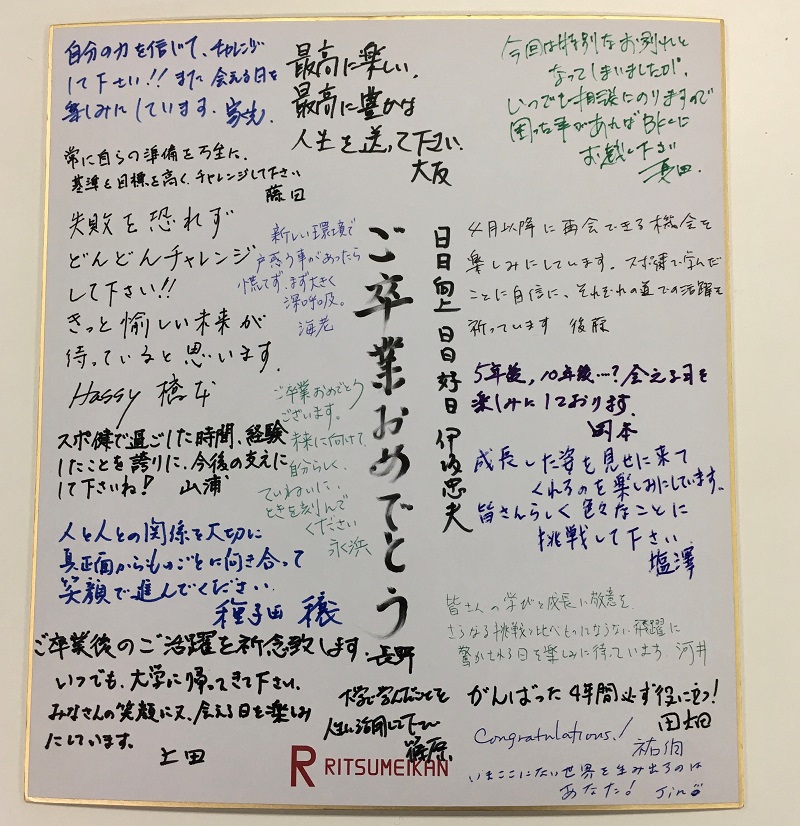 自分の力を信じて、チャレンジ
して下さい!! また会える日を
楽しみにしています。
最高に楽しい、
最高に豊かな
人生を送って下さい。
大友
今回は特別なお別れと
なってしまいましたが、
いつでも相談にのりますので
困った事があればBKCに
お越し下さい
真田
常に自らの準備を万全に、
基準と目標を高く、チャレンジして下さい
藤田
失敗を恐れず
どんどんチャレンジ
して下さい!!
きっと愉しい未来が
待っていると思います。
Hassy 橋本
新しい環境で
戸惑う事があったら
慌てず、まず大きく
深呼吸。
海老
ご卒業おめでとう
日日向上 日日好日 伊坂忠夫
4月以降に再会できる機会を
楽しみにしています。スポ健で学んだ
ことに自信に、それぞれの道での活躍を
祈っています 後藤
5年後,10年後…? 会える日を
楽しみにしております。
岡本
ご卒業おめでとう
ございます。
未来に向けて
自分らしく、
ていねいに、
ときを刻んで
ください
永浜
スポ健で過ごした時間、経験
したことを誇りに、今後の支えに
して下さいね! 山浦
成長した姿を見せに来て
くれるのを楽しみにしています。
皆さんらしく色々なことに
挑戦して下さい
塩澤
人と人との関係を大切に
真正面からものごとに向き合って
笑顔で進んでください
種子田 穣
皆さんの学びと成長に敬意を、
さらなる挑戦と比べものにならない飛躍に
驚かされる日を楽しみに待っています 河井
ご卒業後のご活躍を祈念致します。長野
いつでも、大学に帰ってきて下さい。
みなさんの笑顔に又、会える日を楽しみ
にしています。
上田
大学で学んだことを
人生に活用して下さい
篠原
がんばった4年間必ず役に立つ!
田畑
Congratulations!
祐
いまここにない世界を生み出るのは
あなた! Jin
R RITSUMEIKAN